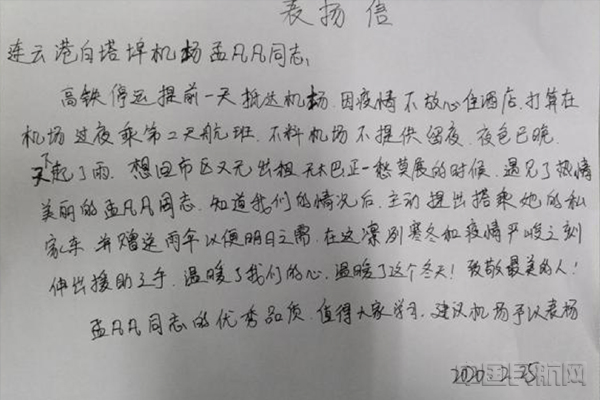 表扬信
连云港白塔埠机场孟凡凡同志:
高铁停运提前一天抵达机场.因疫情不放心住酒店.打算在
机场过夜乘第二天航班.不料机场不提供留夜.夜色已晚.
下起了雨.想回市区又无出租无大巴正一愁莫展的时候.遇见了热情
美丽的孟凡凡同志.知道我们的情况后.主动提出搭乘她的私
家车.并赠送雨伞以便明日之需.在这凛冽寒冬和疫情严峻之刻
伸出援助之手.温暖了我们的心.温暖了这个冬天!致敬最美的人!
孟凡凡同志的优秀品质.值得大家学习.建议机场予以表扬
2020.2.25
中国民航网